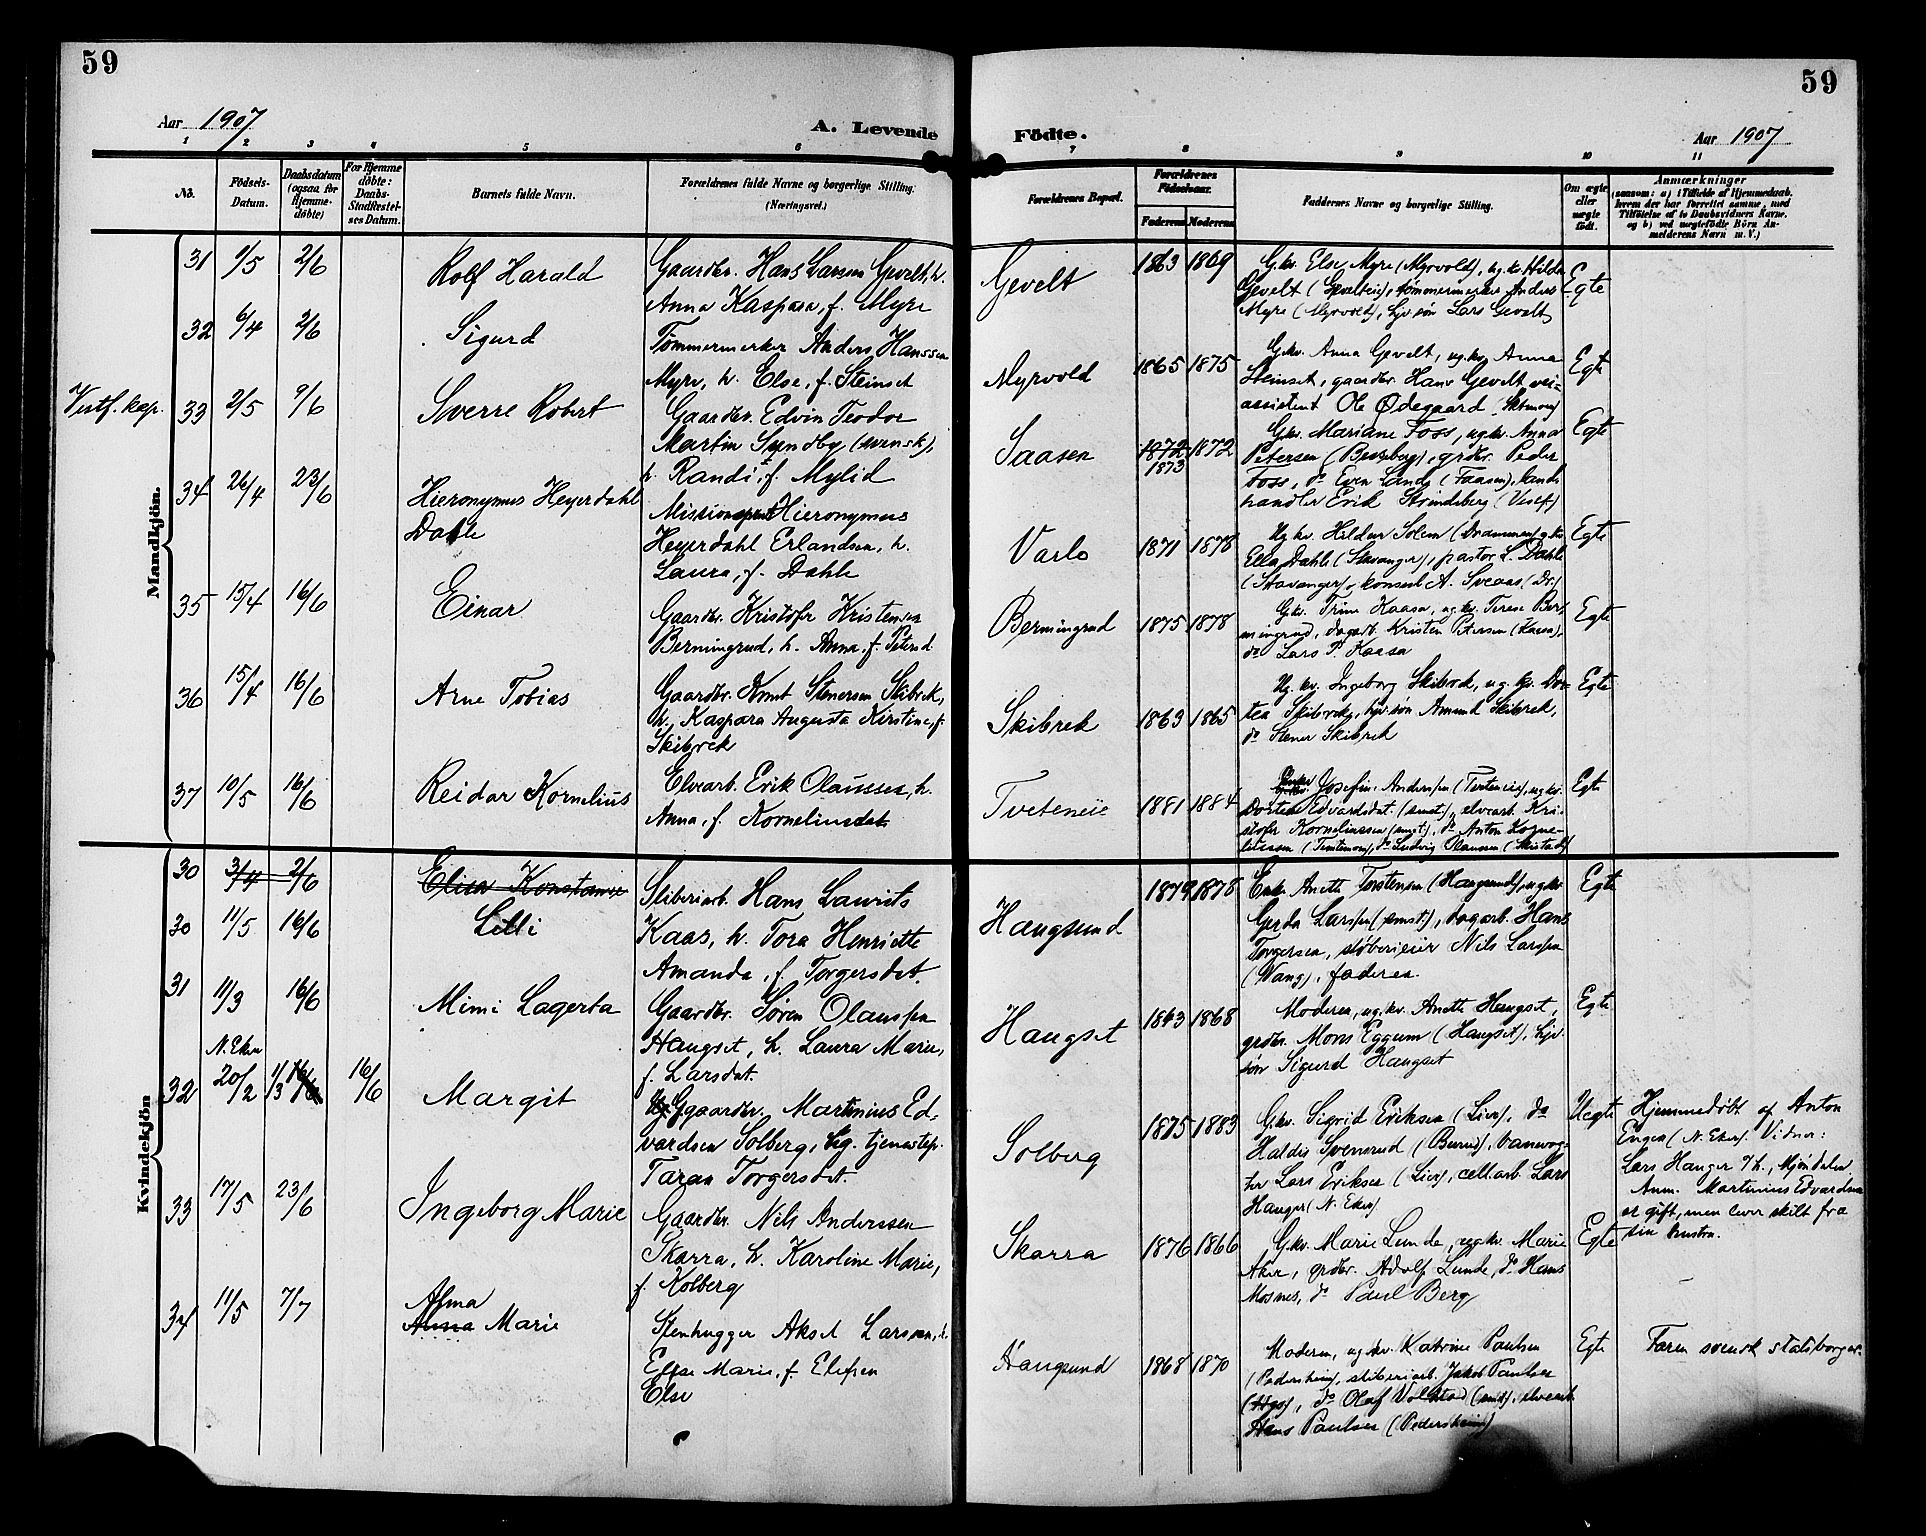 59
59
Aar 1907
A. Levende
Födte.
Aar 1907
1 2 3 4 5 6 7 8 9 10 11
No.
Födsels-
Datum.
Daabsdatum
(ogsaa for
Hjemme-
döbte)
For Hjemme
döbte:
Daabs-
Stadfæstel-
ses Datum.
Barnets fulde Navn.
Forældrenes fulde Navne og borgerlige Stilling.
(Næringsvei.)
Forældrenes Bopæl.
Forældrenes
Födselsaar.
Faderens Moderens
Faddernes Navne og borgerlige Stilling.
Om ægte
eller
uægte
födt.
Anmærkninger
(saasom: a) i Tilfælde af Hjemmedaab,
hvem der har forrettet samme, med
Tilföielse af to Daabsvidners Navne,
og b) ved uægtefödte Börn An-
melderens Navn m. V.)
Mandkjön.
31 9/5 2/6
Rolf Harald
Gaardbr. Hans Larsen Gevelt, h.
Anna Kaspara, f. Myre
Gevelt
1863 1869
Gkv. Else Myre (Myrvold), ug. kv. Hilda
Gevelt ( tømmermerker Anders
Myre (Myrvold), hjv. søn Lars Gevelt
Egte
32 6/4 2/6
Sigurd
Tømmermerker Anders Hanssen
Myre, h. Else, f. Steinset
Myrvold
1865 1875
Gkv. Anna Gevelt, ug. kv. Anna
Steinset, gaardbr. Hans Gevelt, vei-
assistent Ole Ødegaard
Egte
Vestf. kap.
33 2/5 9/6
Sverre Robert
Gaardbr. Edvin Teodor
Martin Sundby (svensk),
h. Randi, f. Mylid
Saasen
1872 1872
1873
Gkv. Mariane Foss, ug. kv. Anna
Petersen ( grdbr. Peder
Foss, do Even Lande ( land-
handler Erik Strindeberg (Vestf)
Egte
34 26/4 23/6
Hieronymus Heyerdahl
Dahle
Missionsprest Hieronymus
Heyerdahl Erlandsen, h.
Laura, f. Dahle
Varlo
1871 1878
Ug. kv. Hildur Solem (Drammen), g. kv.
Ella Dahle (Stavanger), pastor L. Dahle
(Stavanger), konsul A. Sveaas (Dr.)
Egte
35 15/4 16/6
Einar
Gaardbr. Kristofer Kristensen
Bermingrud, h. Anna, f. Petersd.
Bermingrud
1875 1878
Gkv. Trine Kaasa, ug. kv. Terese Ber-
mingrud, dagarb. Kristen Petersen (Kaasa),
do Lars P. Kaasa
Egte
36 15/4 16/6
Arne Tobias
Gaardbr. Knut Stenersen Skibrek,
h. Kaspara Augusta Kirstine, f.
Skibrek
Skibrek
1863 1865
Ug. kv. Ingeborg Skibrek, ug. kv. Dor-
tea Skibrek, hjv. søn Amund Skibrek,
do Stener Skibrek
Egte
37 10/5 16/6
Reidar Kornelius
Elvearb. Erik Olaussen, h.
Anna, f. Korneliusdat.
Tveteneie
1881 1884
Josefine Andersen ( ug. kv.
Dortea Edvardsdat. (smst.), elvearb. Kri-
stofer Korneliussen (smst.), do Anton Korne-
liussen ( do Ludvig Olaussen (
Egte
Kvindekjön
30 3/4 2/6
Elisa Konstanse
30 11/5 16/6
Lilli
Støberiarb. Hans Laurits
Kaas, h. Tora Henriette
Amanda, f. Torgersdat.
Haugsund
1879 1878
Enke Anette Torstensen (Haugsund), ug. kv.
Gerda Larssen (smst.), dagarb. Hans
Torgersen, støberieier Nils Larssen
(Vang), faderen.
Egte
31 11/3 16/6
Mimi Lagerta
Gaardbr. Søren Olaussen
Haugset, h. Laura Marie,
f. Larsdat.
Haugset
1843 1868
Moderen, ug. kv. Anette Haugset,
grdbr. Mons Eggum (Haugset), hjv.
søn Sigurd Haugset
Egte
N. Eker
32 20/2 1/3 16/6 16/6
Margit
Ggaardbr. Martinius Ed-
vardsen Solberg, ug. tjenestep.
Taran Torgersdat.
Solberg
1875 1883
Gkv. Sigrid Eriksen (Lier), do
Haldis Svensrud ( banevog-
ter Lars Eriksen (Lier), cell.arb. Lars
Hanger (N. Eker)
Uegte
Hjemmedøbt af Anton
Engen (N. Eker). Vidner:
Lars Hanger o/h., Mjøndalen
Anm. Martinius Edvardsen
er gift, men lever skilt fra
sin hustru.
33 17/5 23/6
Ingeborg Marie
Gaardbr. Nils Anderssen
Skarra, h. Karoline Marie,
f. Kolberg
Skarra
1876 1866
Gkv. Marie Lunde, ug. kv. Marie
Aker, grdbr. Adolf Lunde, do Hans
Mosnes, do Paul Berg
Egte
34 11/5 7/7
Alma
Anna Marie
Stenhugger Aksel Larssen, h.
Else Marie, f. Elefsen
Else
Haugsund
1868 1870
Moderen, ug. kv. Katrine Paulsen
(Pedersheim), støberiarb. Jakob Paulsen
(Hgs), do Olaf Volstad (smst), elvearb.
Hans Paulsen (Pedersheim)
Egte
Faren svensk statsborger.